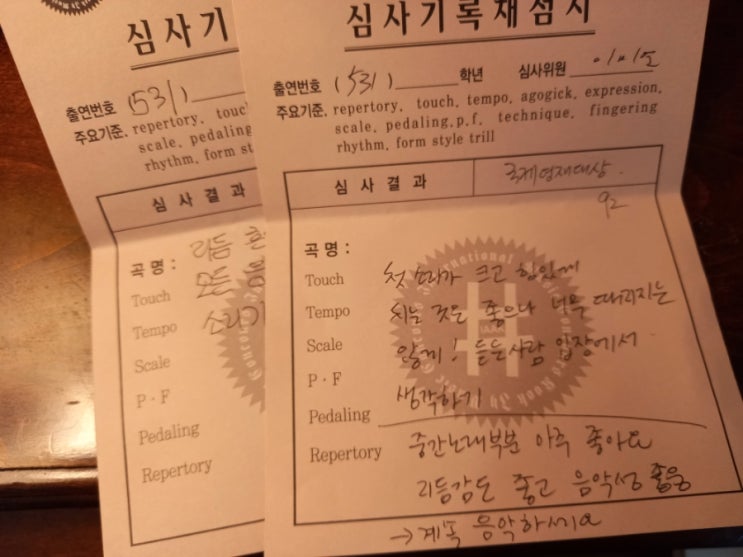 심사기
출연번호 (531)
주요기준. repertory, touc
scale, pedaling
rhythm, form st
심사결과
곡명:
리듬
Touch
모든
Tempo
소리가
Scale
P·F
Pedaling
Repertory
심사기록채점지
출연번호 (531) 학년 심사위원
주요기준. repertory, touch, tempo, agogick, expression,
scale, pedaling,p,f, technique, fingering
rhythm, form style trill
심사결과 국제영재대상.
92
곡명:
Touch 첫 소리가 크고 힘있게
Tempo 치는 것은 좋으나 너무 때려지는
Scale 않게! 듣는사람 입장에서
P·F
생각하기
Pedaling
Repertory 중간노래부분 아주 좋아요
리듬감도 좋고 음악성 좋음
→계속 음악하세요